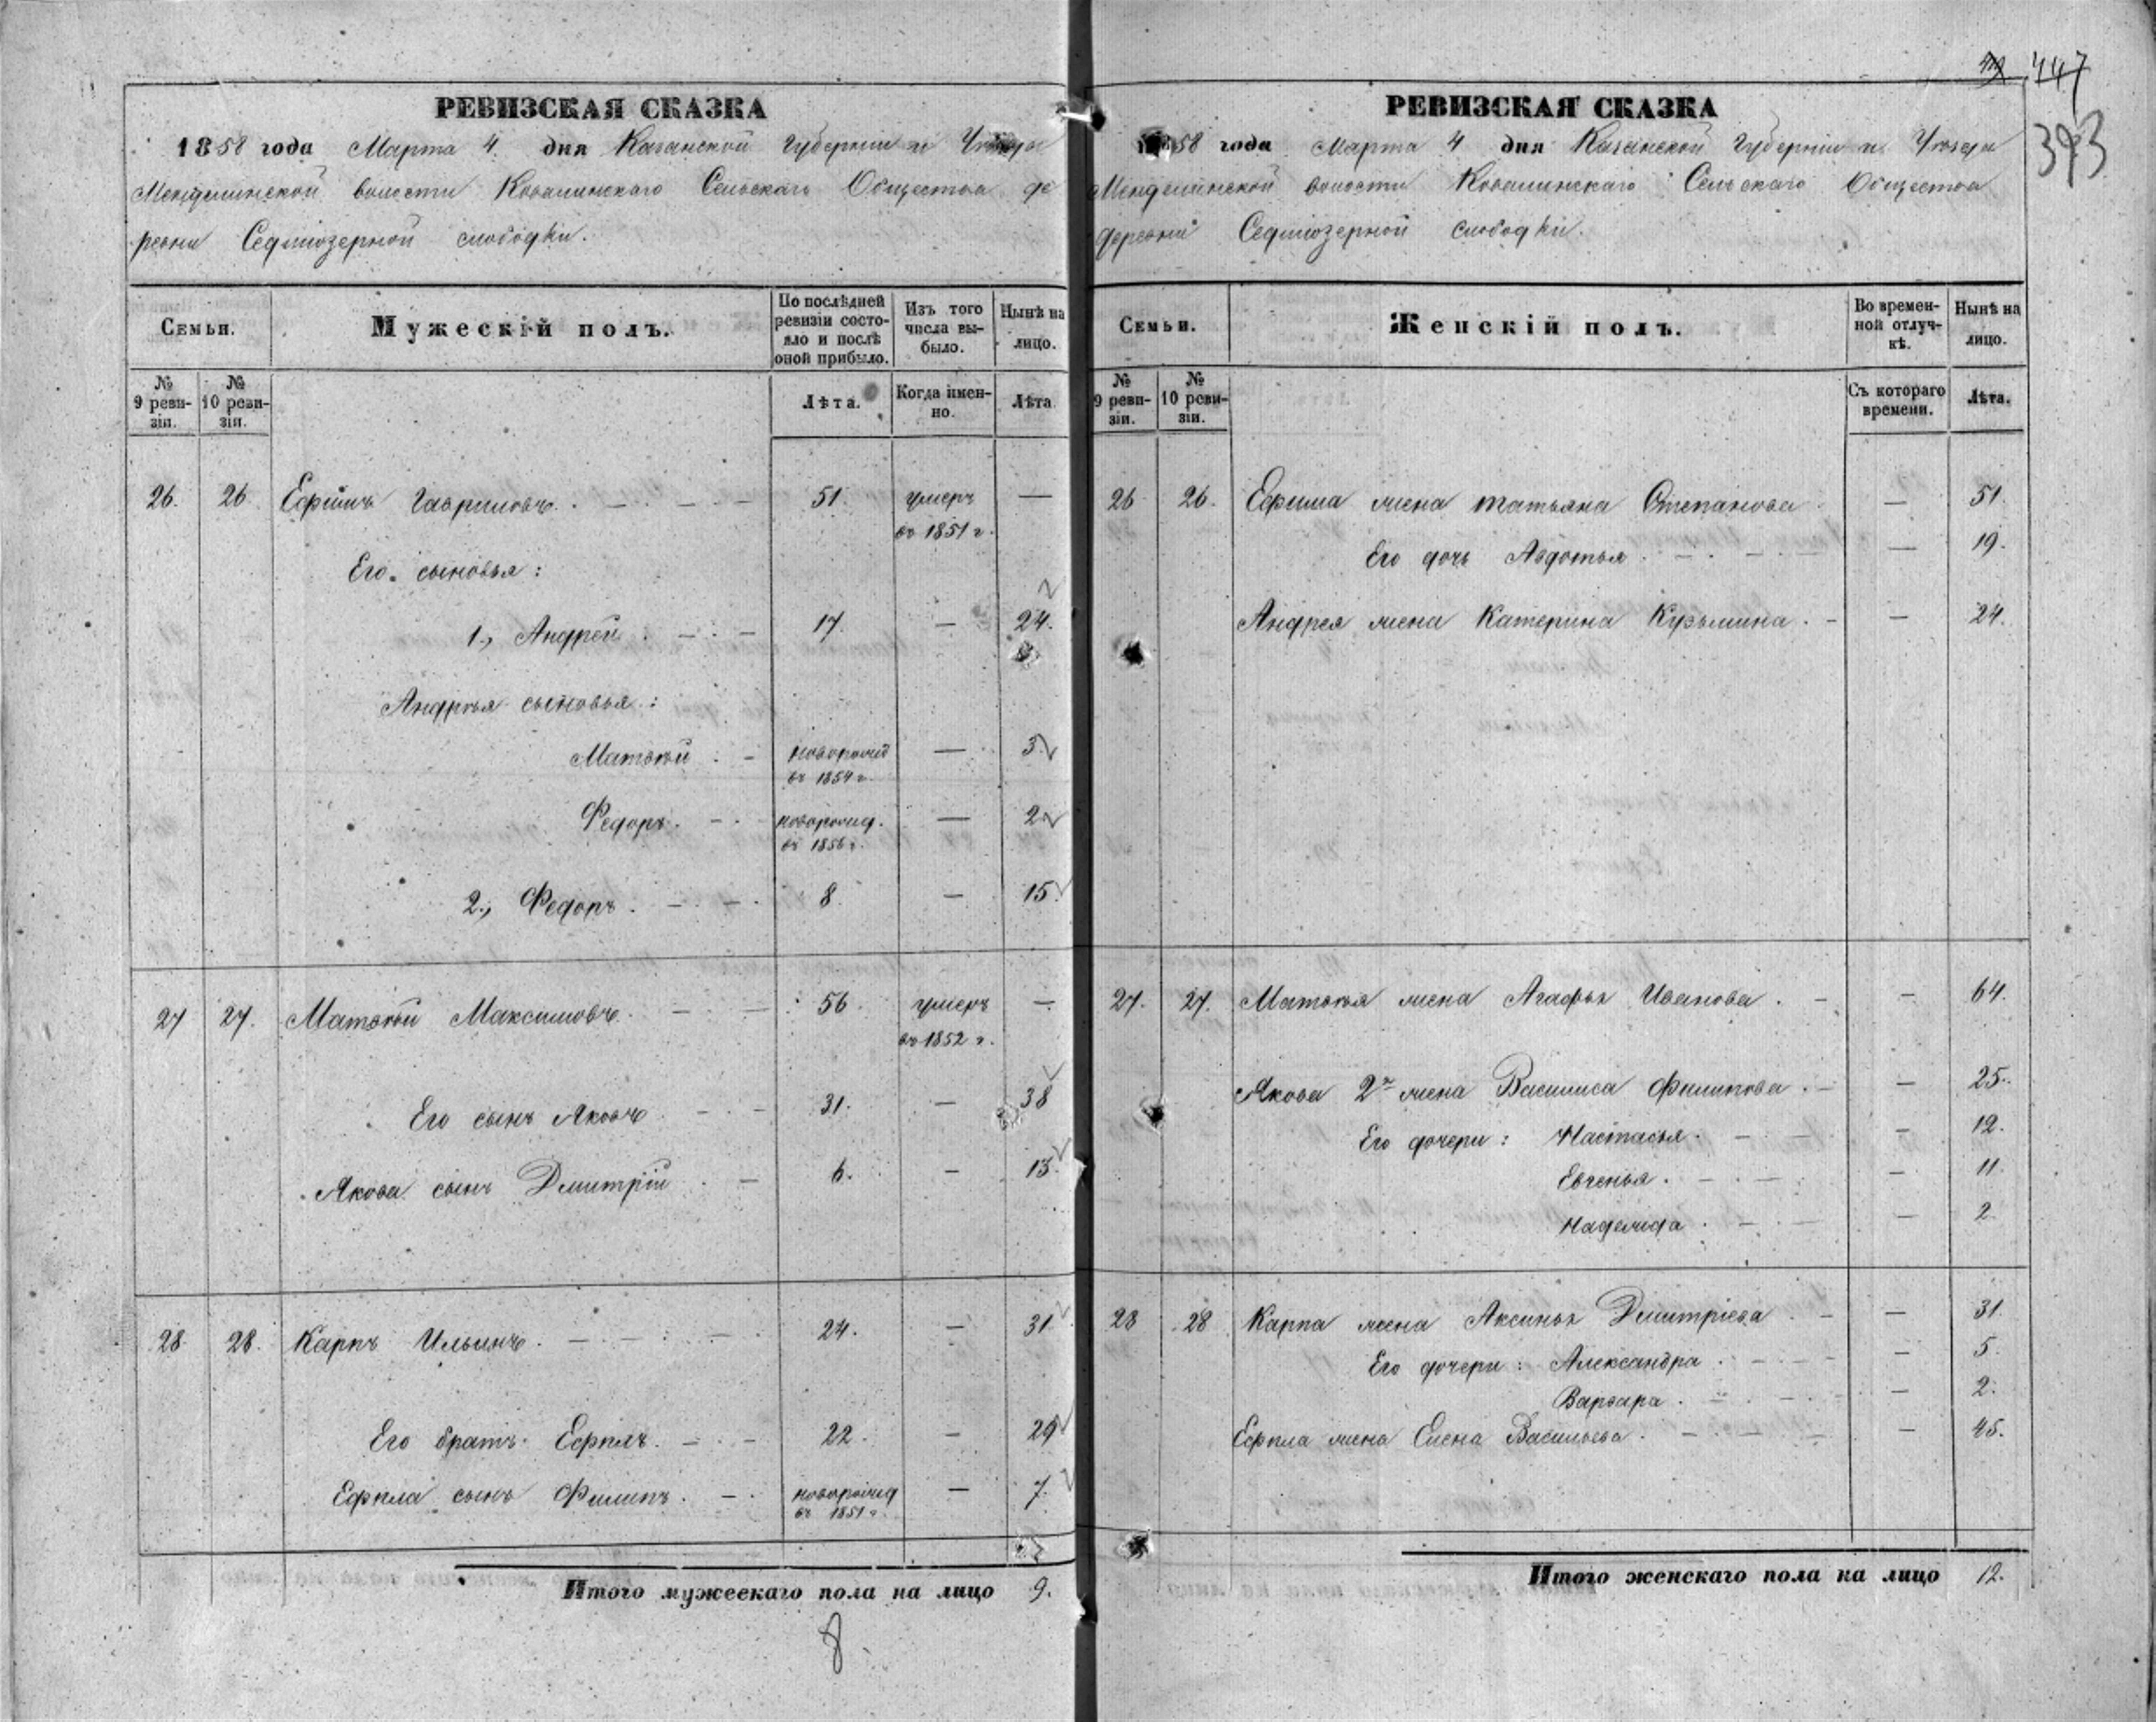 РЕВИЗСКАЯ СКАЗКА
1858 года Марта 4 дня Казанской Губернии и Уѣзда
Менделинской волости Ковалинскаго Сельскаго Общества де
ревни Седміозерной слободки.
Семьи.
Мужескій полъ.
По послѣдней ревизіи состояло и послѣ оной прибыло.
Изъ того числа выбыло.
Нынѣ на лицо.
№ 9 ревизіи.
№ 10 ревизіи.
Лѣта.
Когда именно.
Лѣта
26. 26 Ефимъ Гавриловъ. 51. умеръ —
въ 1851 г.
Его сыновья:
1., Андрей 17. — 24.
Андрѣя сыновья:
Матвѣй новорожд — 3
въ 1854 г.
Федоръ. новорожд. — 2
въ 1856 г.
2., Федоръ. 8. — 15
27 27. Матвѣй Максимовъ. 56 умеръ —
въ 1852 г.
Его сынъ Яковъ 31. — 38
Якова сынъ Дмитрій 6. — 13.
28. 28. Карпъ Ильинъ. 24. — 31
Его братъ Ефплъ. 22. — 29
Ефпла сынъ Филипъ. новорожд — 7.
въ 1851 г.
Итого мужескаго пола на лицо 9.
8
447
393
РЕВИЗСКАЯ СКАЗКА
1858 года Марта 4 дня Казанской Губерніи и Уѣзда
Менделинской волости Ковалинскаго Сельскаго Общества
деревни Седміозерной слободки.
Семьи.
Женскій полъ.
Во временной отлучкѣ.
Нынѣ на лицо.
№ 9 ревизіи.
№ 10 ревизіи.
Съ котораго времени.
Лѣта.
26 26. Ефима жена Татьяна Степанова — 51.
Его дочь Авдотья — 19.
Андрея жена Катерина Кузьмина. — 24.
27. 27. Матвѣя жена Агафья Иванова. — 64.
Якова 2я жена Василиса Филипова. — 25.
Его дочери: Настасья. — 12.
Евгенья. — 11
Надежда. — 2.
28 28 Карпа жена Аксинья Дмитріева — 31
Его дочери: Александра. — 5.
Варвара. — 2.
Ефпла жена Елена Васильева. — 45.
Итого женскаго пола на лицо 12.